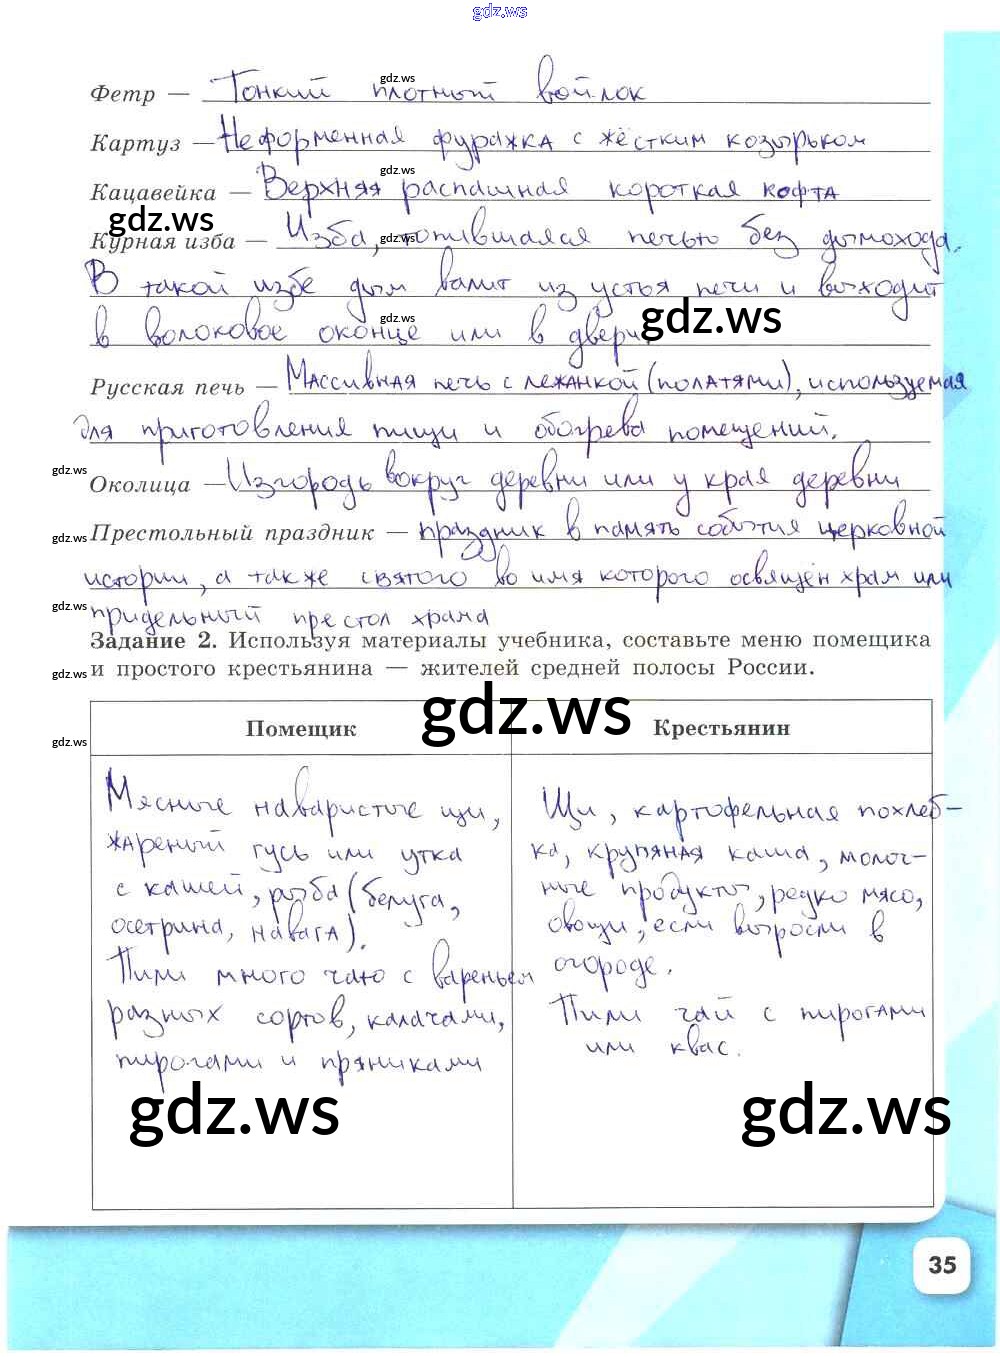 gdz.ws
Фетр — Тонкий плотный войлок
gdz.ws
Картуз — Неформенная фуражка с жёстким козырьком
gdz.ws
Кацавейка — Верхняя распашная короткая кофта
gdz.ws
Курная изба — Изба, топившаяся печью без дымохода.
gdz.ws
В такой избе дым валит из устья печи и выходит
gdz.ws
в волоковое оконце или в двери
gdz.ws
Русская печь — Массивная печь с лежанкой (полатями), используемая
для приготовления пищи и обогрева помещений.
gdz.ws
Околица — Изгородь вокруг деревни или у края деревни
gdz.ws
Престольный праздник — праздник в память события церковной
истории, а также святого во имя которого освящён храм или
gdz.ws
придельный престол храма
Задание 2. Используя материалы учебника, составьте меню помещика
и простого крестьянина — жителей средней полосы России.
gdz.ws
gdz.ws
Помещик
Крестьянин
gdz.ws
Мясные наваристые щи,
жареный гусь или утка
с кашей, рыба (белуга,
осетрина, навага).
Пили много чаю с вареньем
разных сортов, калачами,
пирогами и пряниками
Щи, картофельная похлеб-
ка, крупяная каша, молоч-
ные продукты, редко мясо,
овощи, если выросли в
огороде.
Пили чай с пирогами
или квас.
gdz.ws
gdz.ws
35